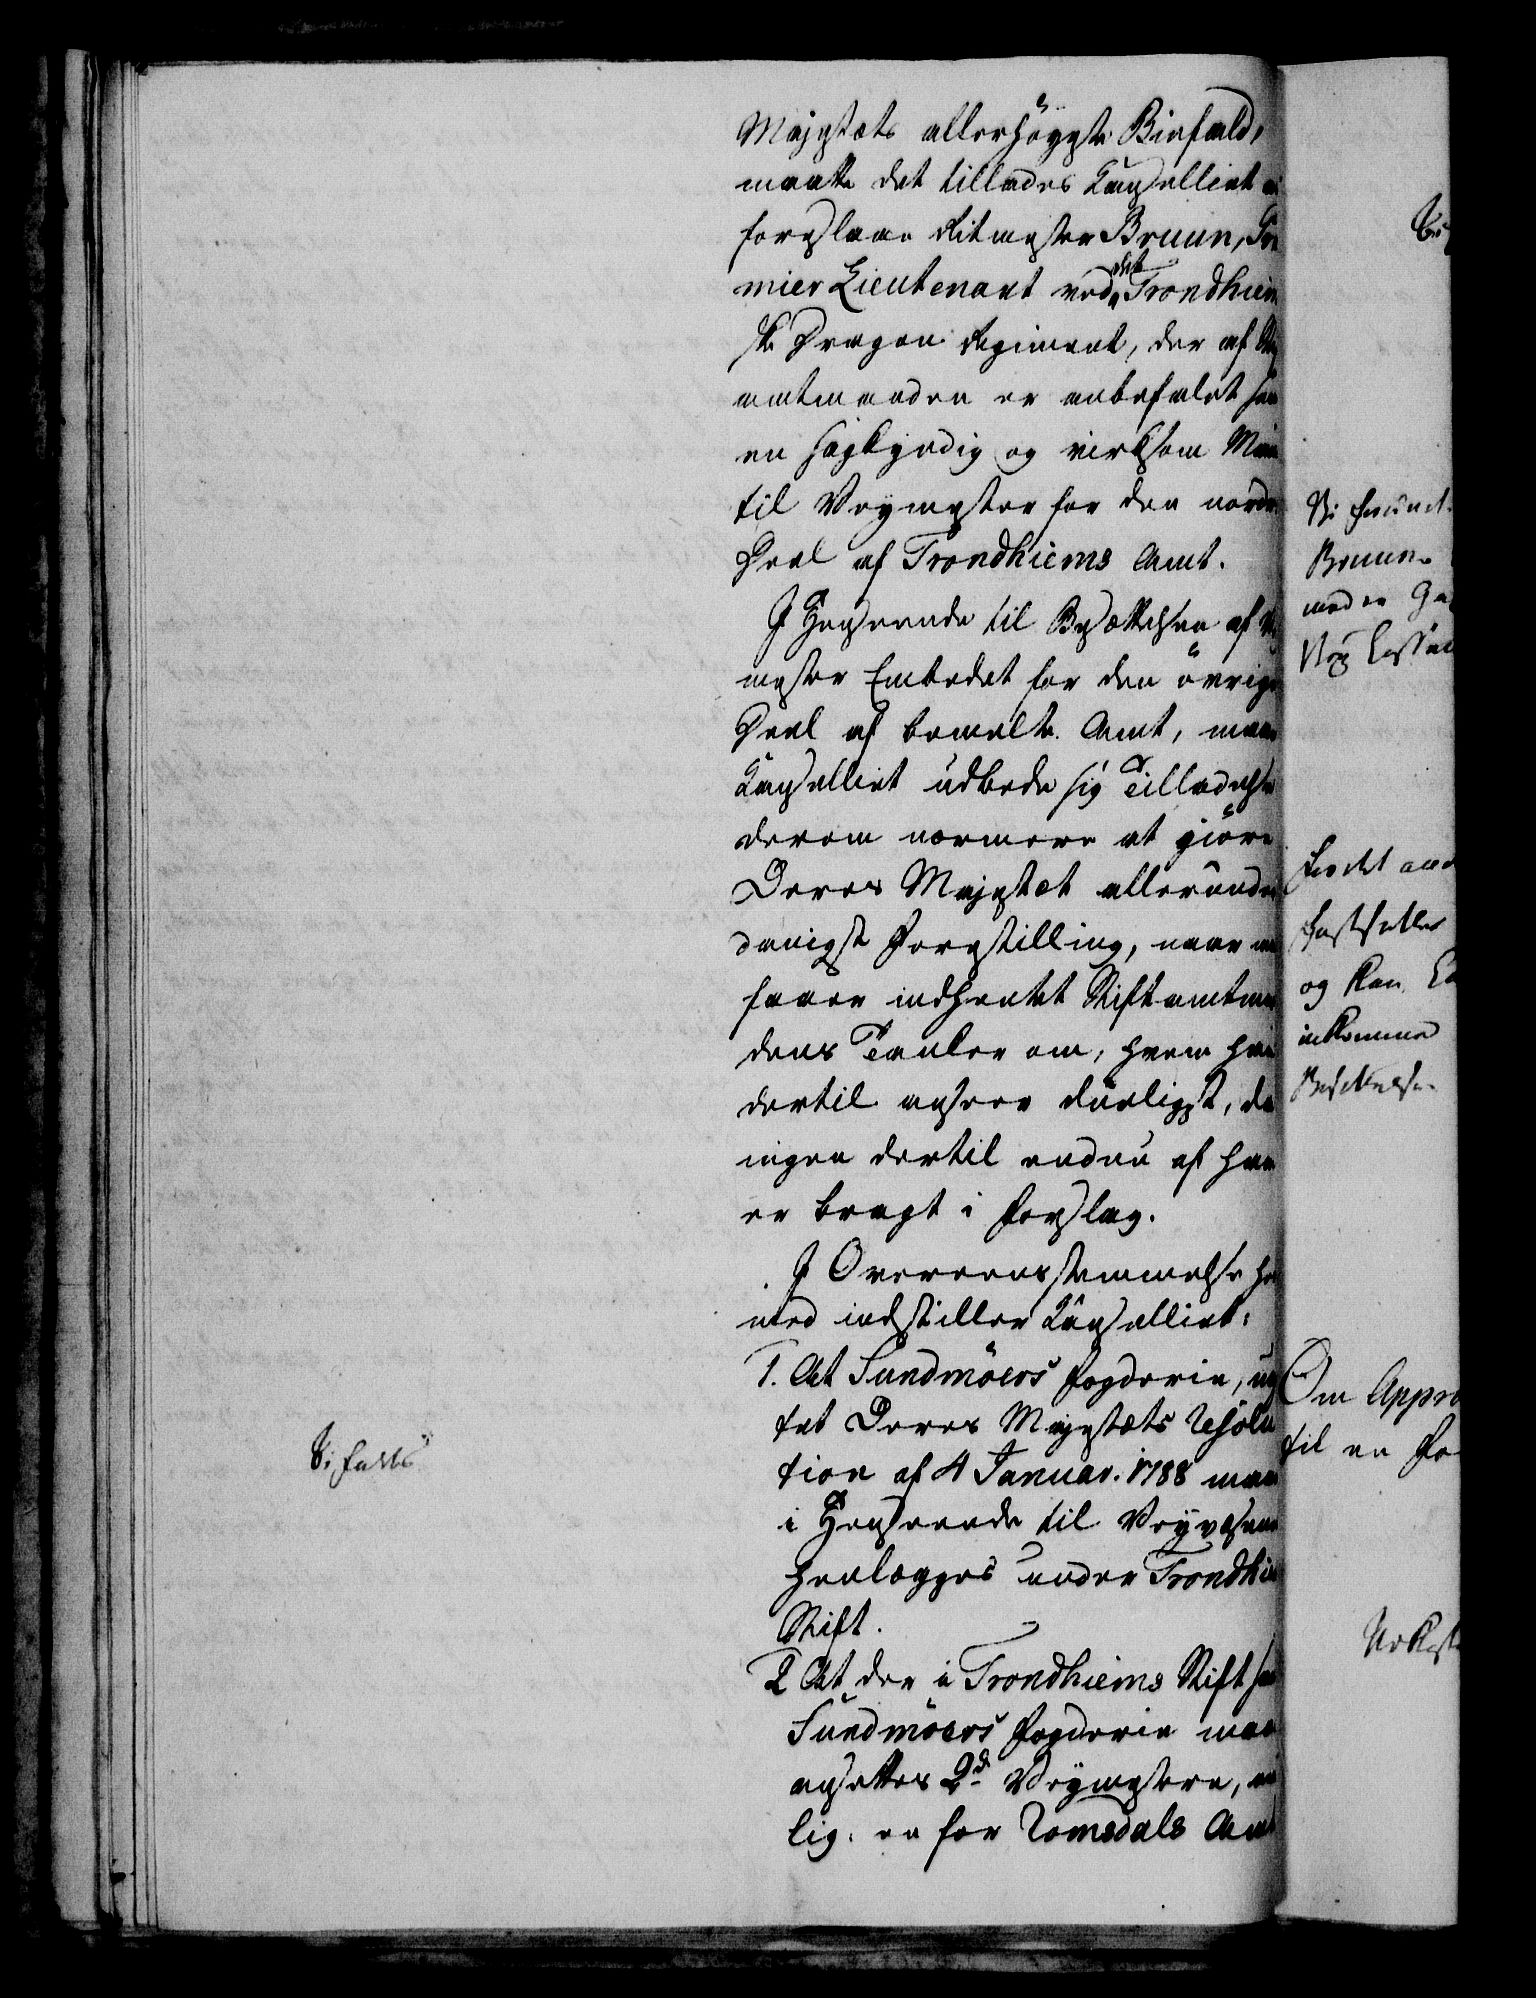 Majestæts allerhöyeste Biefald,
maatte det tillades Cancelliet
foreslaae Ritmester Bruun, Pre
mier Lieutenant ved det Trondhiem
ske Dragon Regiment, der af
amtmanden er anbefalet
en sagkyndig og virksom
til Veymester for den nordre
Deel af Trondhiems Amt.
I Henseende til Besættelsen af
mester Embedet for den övrige
Deel af bemelte Amt, maae
Cancelliet udbede sig Tilladelse
derom nærmere at giöre
Deres Majestæt allerunder
danigst Forestilling, naar
faaer indhentet Stiftamtman
dens Tanker om, hvem han
dertil ansees dueligst, da
ingen dertil endnu af ham
er bragt i Forslag.
I Overeensstemmelse her
med indstiller Cancelliet:
1. At Sundmöers Fogderie,
tet Deres Majestæts Resolu
tion af 4 Januar. 1788 maae
i Henseende til Veyvæsenet
henlægges under Trondhiems
Stift.
2 At der i Trondhiems Stift
Sundmöers Fogderie maae
ansættes 2de Veymestere,
lig. en for Romsdals Amt
Bifaldes
Bruun
med en
Fordet
Fastsættes
og kan
indkomme
Besættelse
Om Appro
til en Fo